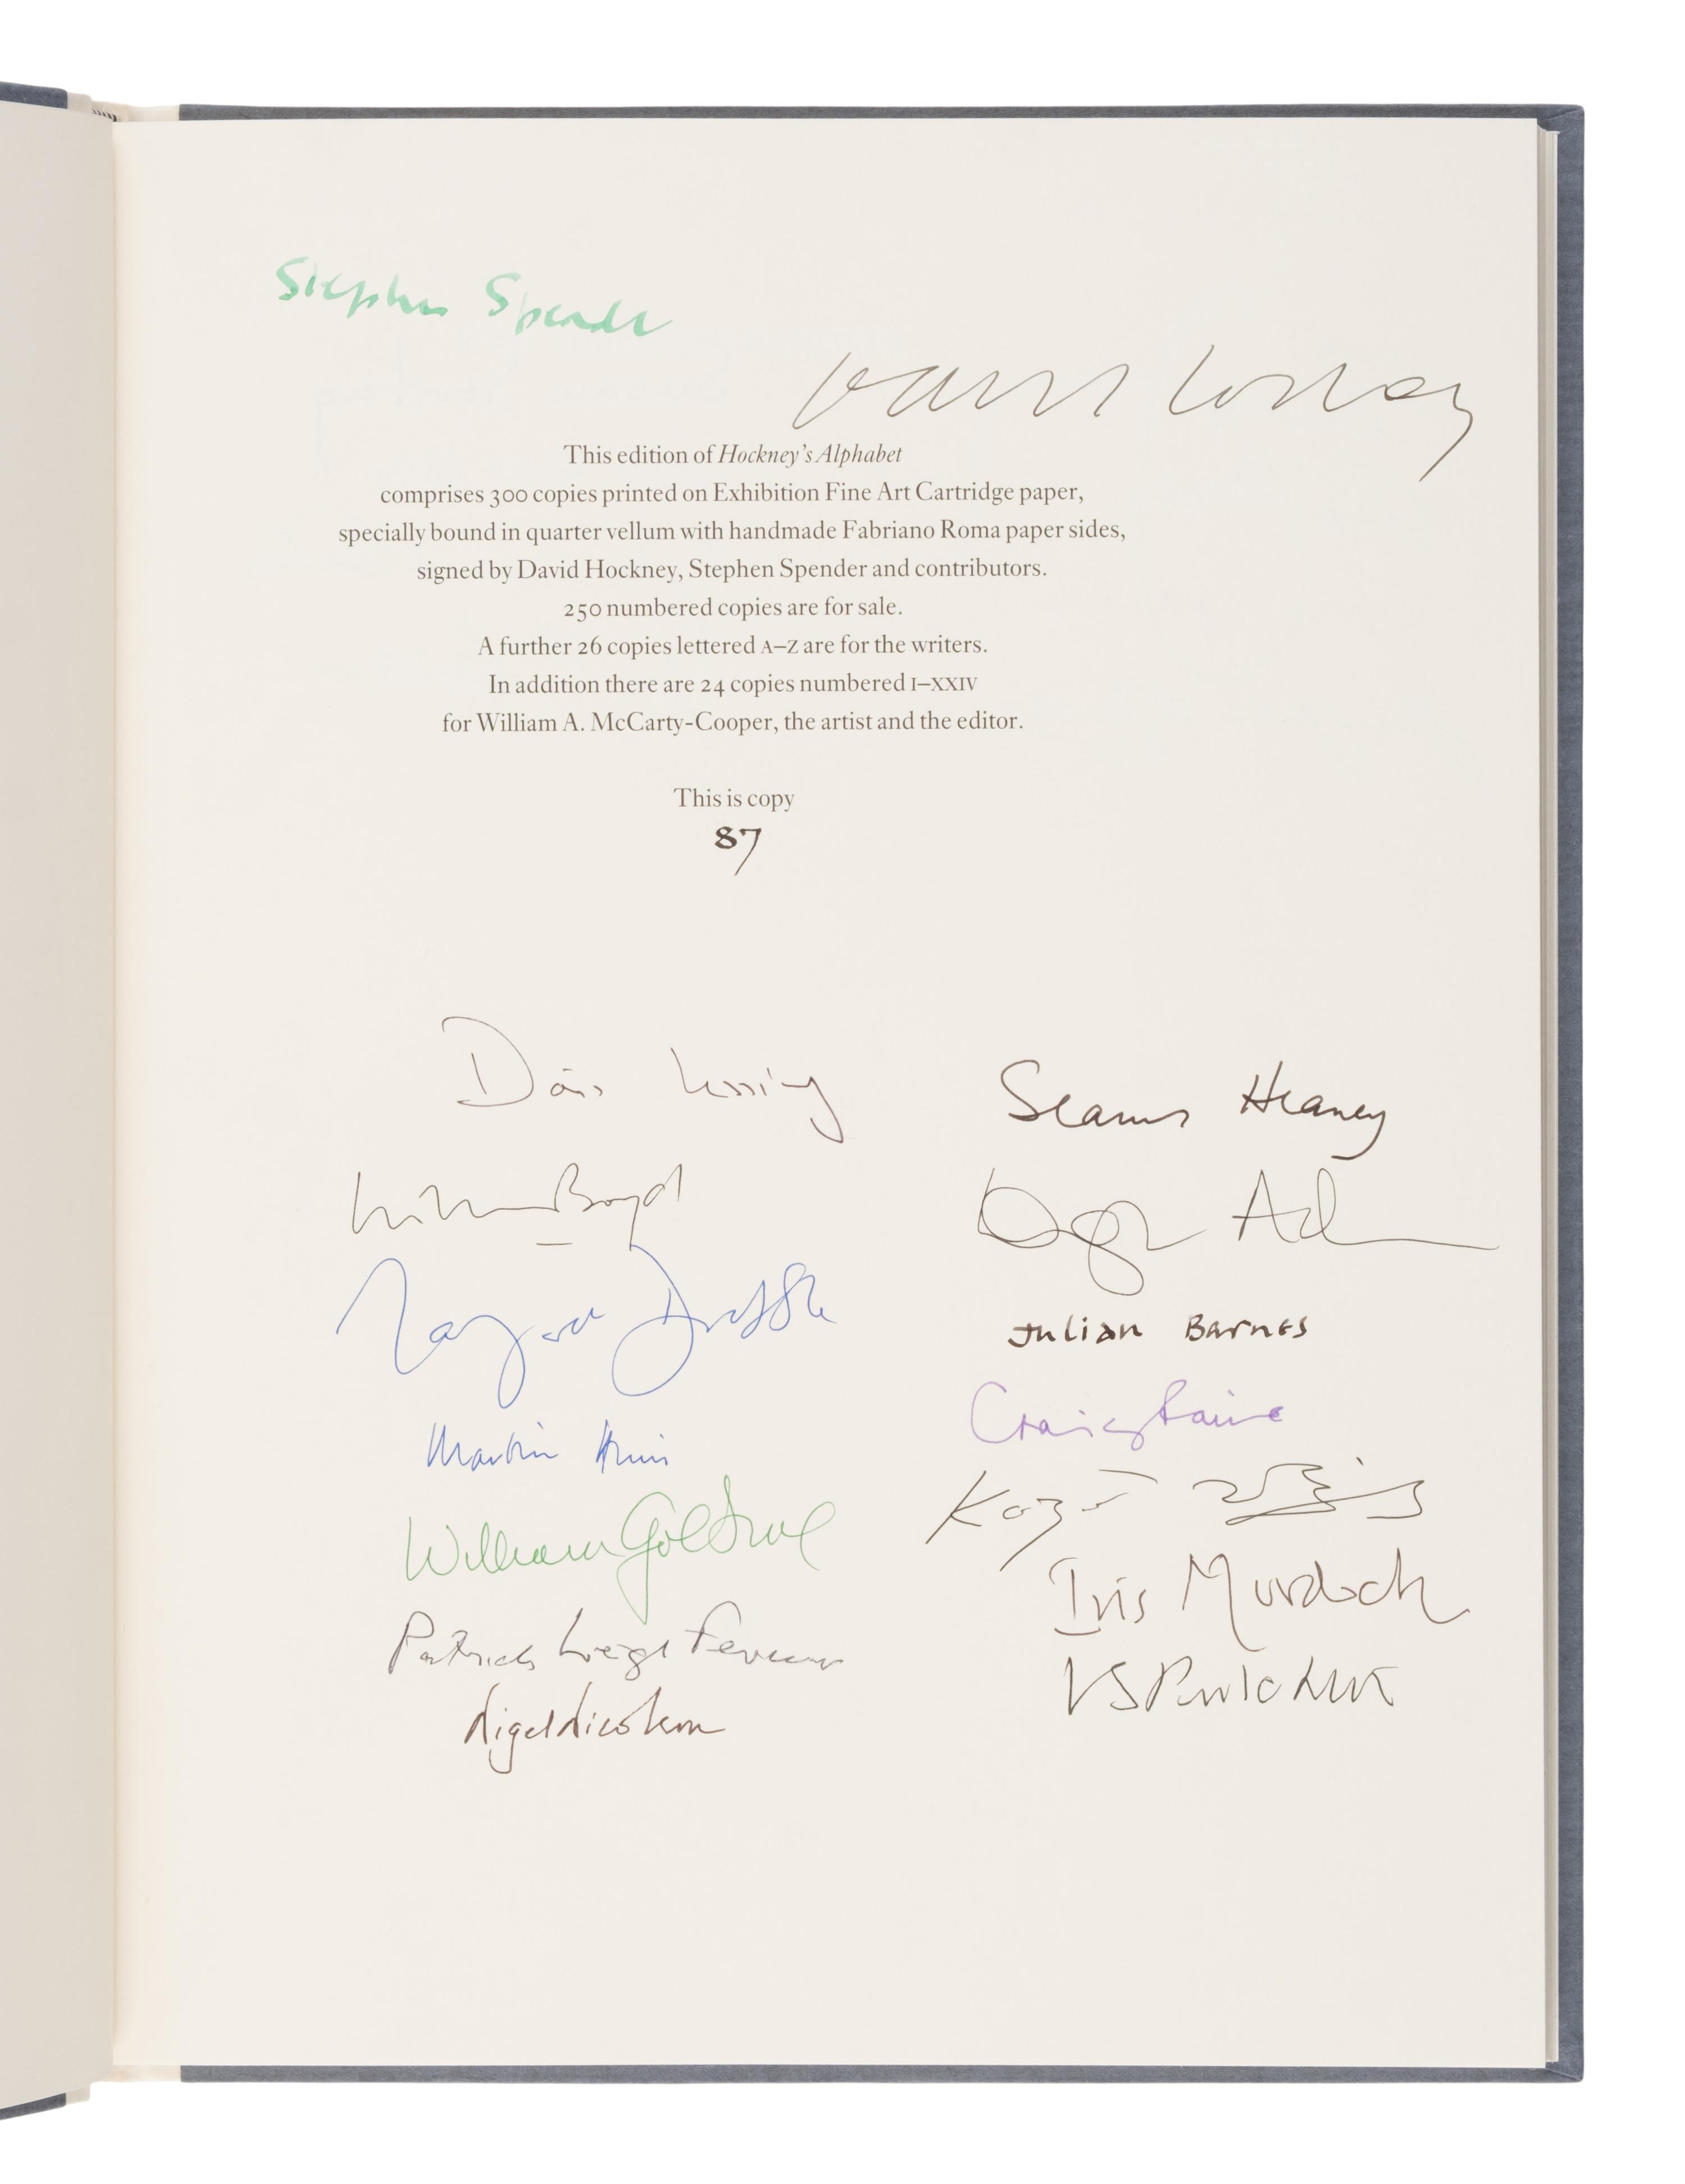 Stephen Spender
David Hockney
This edition of Hockney's Alphabet
comprises 300 copies printed on Exhibition Fine Art Cartridge paper,
specially bound in quarter vellum with handmade Fabriano Roma paper sides,
signed by David Hockney, Stephen Spender and contributors.
250 numbered copies are for sale.
A further 26 copies lettered A–Z are for the writers.
In addition there are 24 copies numbered I–XXIV
for William A. McCarty-Cooper, the artist and the editor.
This is copy
87
Doris Lessing
William Boyd
Margaret Drabble
Martin Amis
William Golding
Patrick Leigh Fermor
Nigel Nicolson
Seamus Heaney
Douglas Adams
Julian Barnes
Craig Raine
Kazuo Ishiguro
Iris Murdoch
VS Pritchett